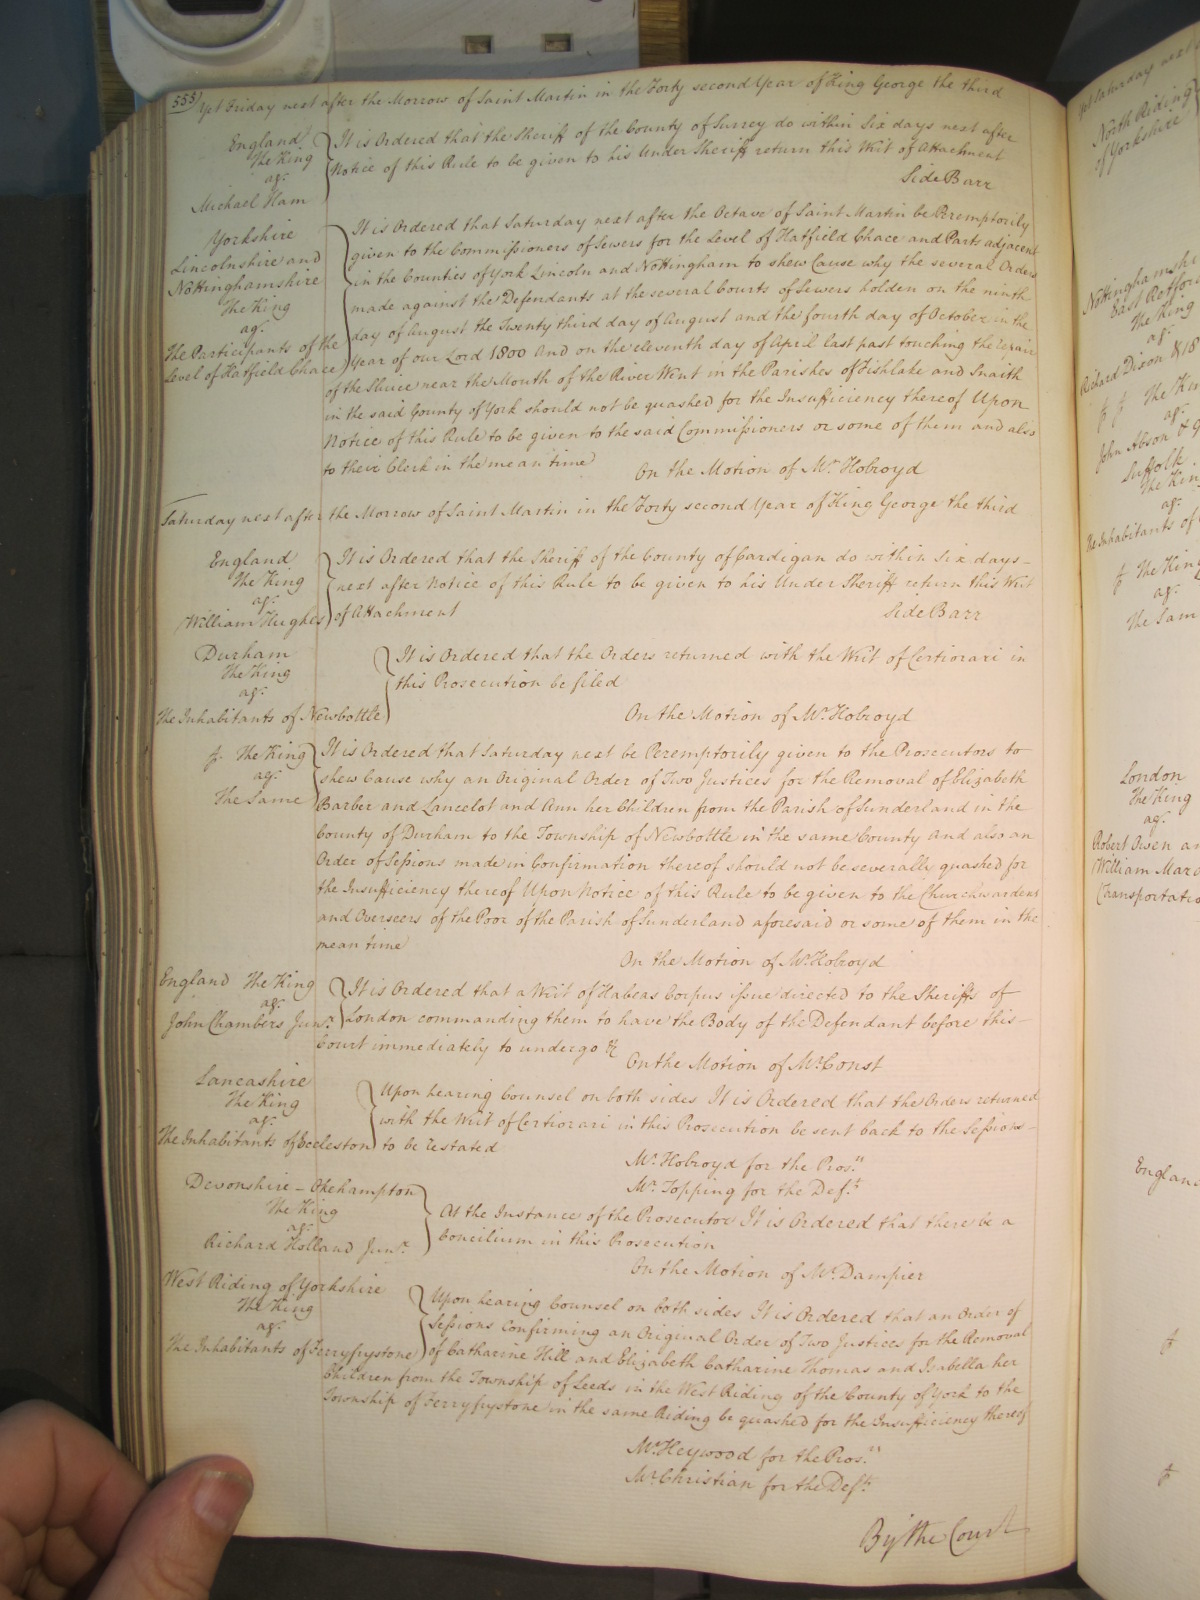 555) Yet Friday next after the Morrow of Saint Martin in the Forty second Year of King George the third
England
The King
agt.
Michael Ham
It is Ordered that the Sheriff of the County of Surrey do within Six days next after
Notice of this Rule to be given to his Under Sheriff return this Writ of Attachment
Side Barr
Yorkshire
Lincolnshire and
Nottinghamshire
The King
agt.
The Participants of the
Level of Hatfield Chace
It is Ordered that Saturday next after the Octave of Saint Martin be Peremptorily
given to the Commissioners of Sewers for the Level of Hatfield Chace and Parts adjacent
in the Counties of York Lincoln and Nottingham to shew Cause why the several Orders
made against the Defendants at the several Courts of Sewers holden on the ninth
day of August the Twenty third day of August and the fourth day of October in the
Year of our Lord 1800 And on the eleventh day of April last past touching the repair
of the Sluice near the Mouth of the River Went in the Parishes of Fishlake and Snaith
in the said County of York should not be quashed for the Insufficiency thereof Upon
Notice of this Rule to be given to the said Commissioners or some of them and also
to their Clerk in the mean time
On the Motion of Mr. Hobroyd
Saturday next after the Morrow of Saint Martin in the Forty second Year of King George the third
England
The King
agt.
William Hughes
It is Ordered that the Sheriff of the County of Cardigan do within Six days
next after Notice of this Rule to be given to his Under Sheriff return this Writ
of Attachment
Side Barr
Durham
The King
agt.
The Inhabitants of Newbottle
It is Ordered that the Orders returned with the Writ of Certiorari in
this Prosecution be filed
On the Motion of Mr. Hobroyd
The King
agt.
The Same
It is Ordered that Saturday next be Peremptorily given to the Prosecutors to
shew Cause why an Original Order of Two Justices for the Removal of Elizabeth
Barber and Lancelot and Ann her Children from the Parish of Sunderland in the
County of Durham to the Township of Newbottle in the same County And also an
Order of Sessions made in Confirmation thereof should not be severally quashed for
the Insufficiency thereof Upon Notice of this Rule to be given to the Churchwardens
and Overseers of the Poor of the Parish of Sunderland aforesaid or some of them in the
mean time
On the Motion of Mr. Hobroyd
England The King
agt.
John Chambers Junr.
It is Ordered that a Writ of Habeas Corpus issue directed to the Sheriffs of
London commanding them to have the Body of the Defendant before this
Court immediately to undergo &c
On the Motion of Mr. Const
Lancashire
The King
agt.
The Inhabitants of Eccleston
Upon hearing Counsel on both sides It is Ordered that the Orders returned
with the Writ of Certiorari in this Prosecution be sent back to the Sessions
to be restated
Mr. Hobroyd for the Pros.rs
Mr. Topping for the Def.ts
Devonshire - Okehampton
The King
agt.
Richard Holland Junr.
At the Instance of the Prosecutor It is Ordered that there be a
Concilium in this Prosecution
On the Motion of Mr. Dampier
West Riding of Yorkshire
The King
agt.
The Inhabitants of Ferryfrystone
Upon hearing Counsel on both sides It is Ordered that an Order of
Sessions confirming an Original Order of Two Justices for the Removal
of Catharine Hill and Elizabeth Catharine Thomas and Isabella her
Children from the Township of Leeds in the West Riding of the County of York to the
Township of Ferryfrystone in the same Riding be quashed for the Insufficiency thereof
Mr. Heywood for the Pros.rs
Mr. Christian for the Def.ts
By the Court
North Riding
of Yorkshire
Nottinghamshire
East Retford
The King
agt.
Richard Dixon & 18
The Kin
agt.
John Abson & 9
Suffolk
The Kin
agt.
The Inhabitants of
The Kin
agt.
The Sam
London
The King
agt.
Robert Owen an
William Mar
(Transportatio
England